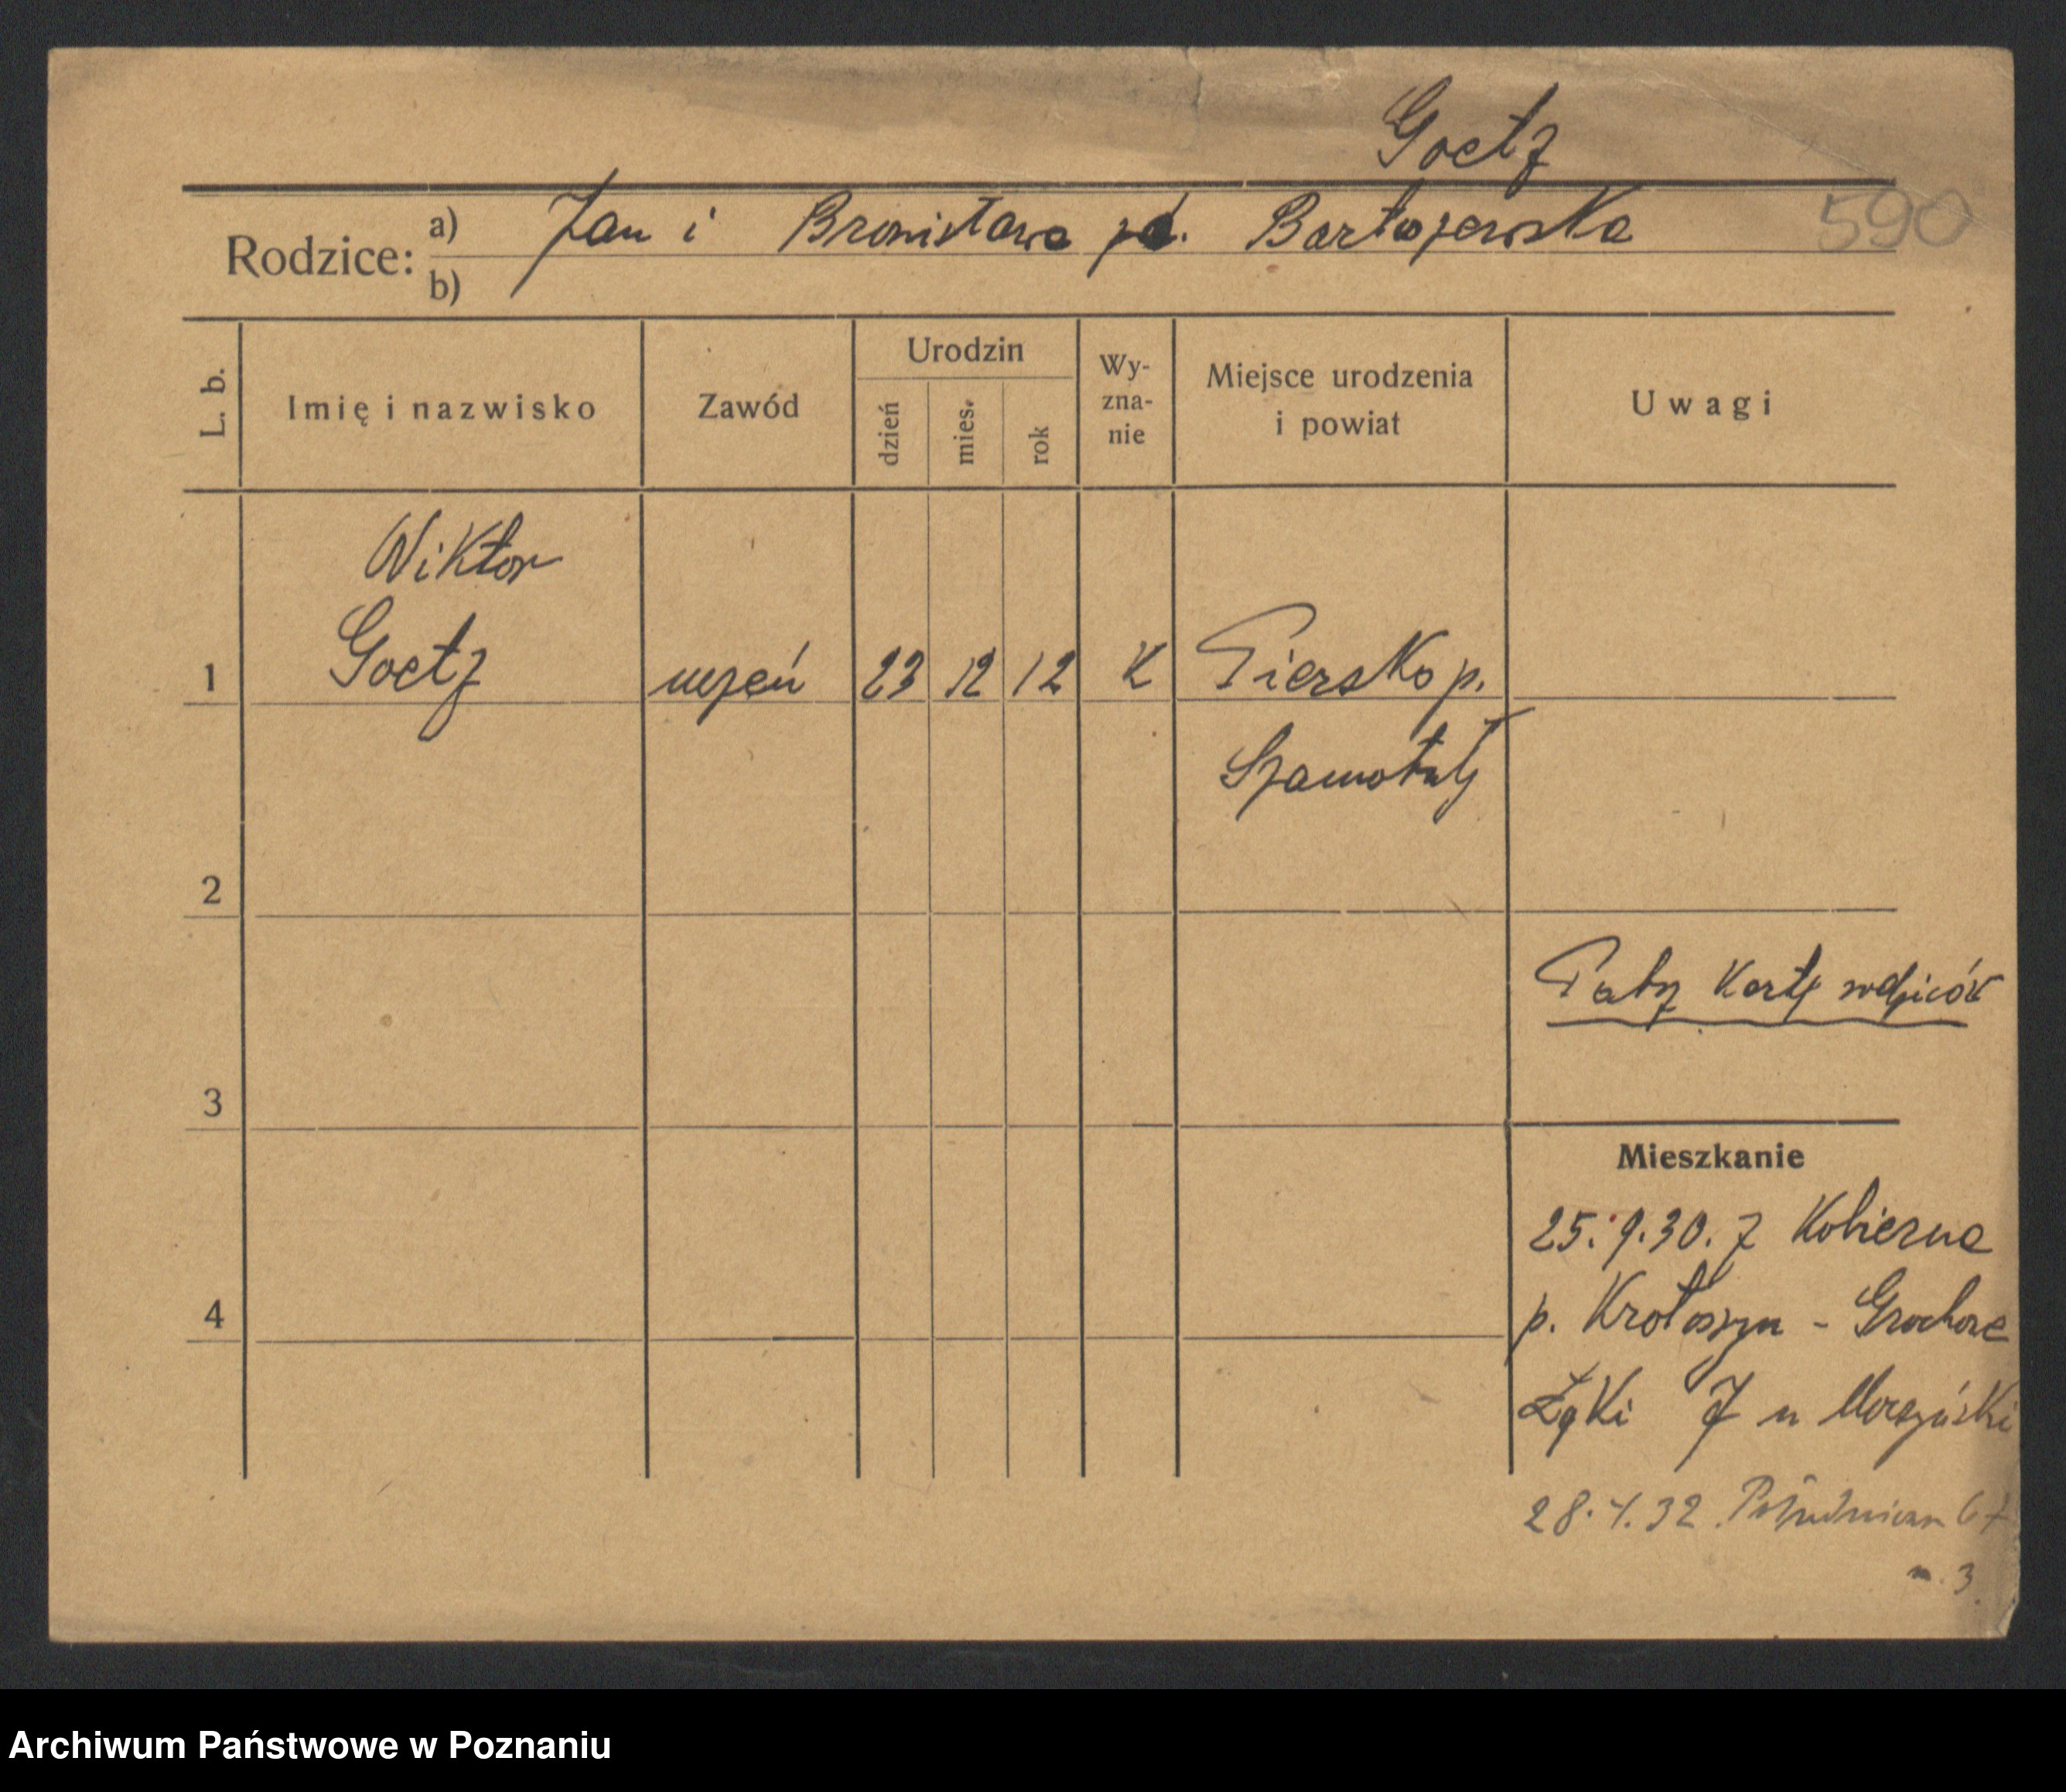 Goetz
590
Rodzice: a) Jan i Bronisława zd. Bartoszewska
b)
L. b.
Imię i nazwisko
Zawód
Urodzin
dzień
mies.
rok
Wy-
zna-
nie
Miejsce urodzenia
i powiat
Uwagi
Wiktor
1 Goetz uczeń 23 12 12 K Piersko p.
Szamotuły
2
Patrz Kartę rodziców
3
Mieszkanie
25.9.30. z Kobierna
p. Krotoszyn - Grochowe
4
Łąki 7 u
28.4.32. 67
m. 3
Archiwum Państwowe w Poznaniu